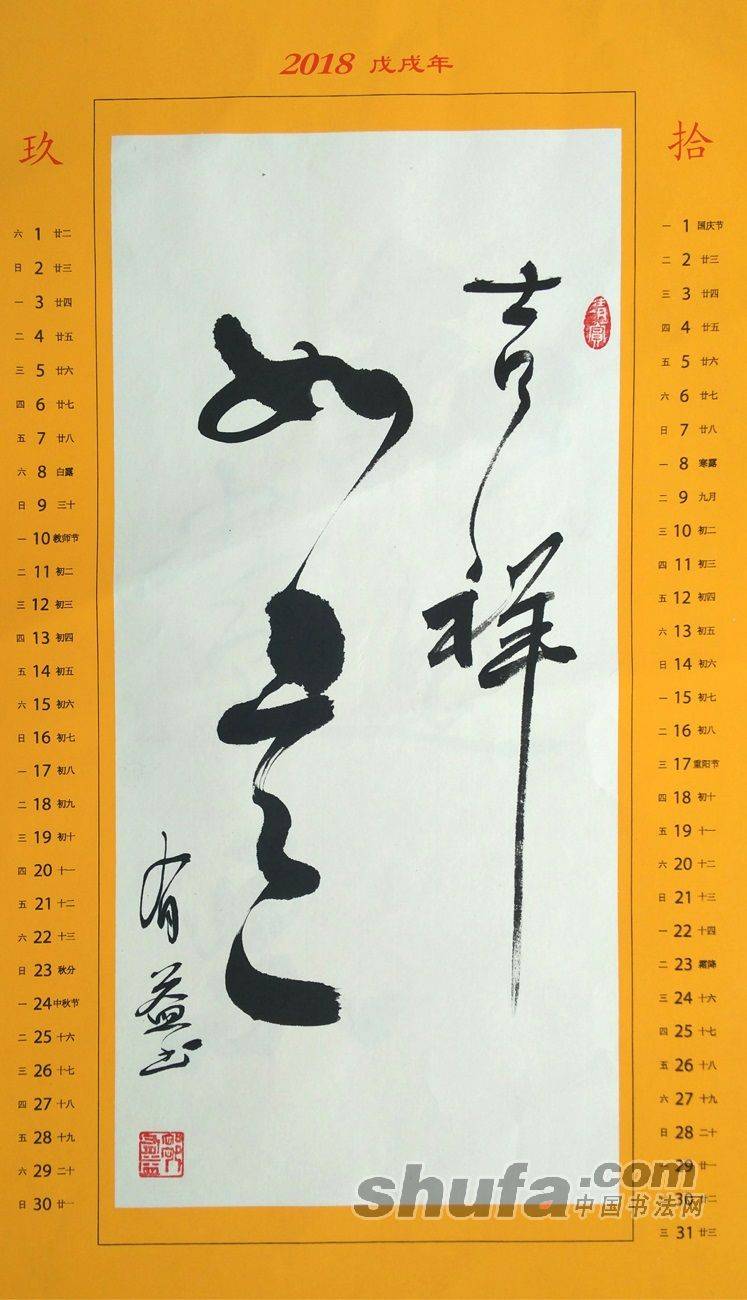 2018 戊戌年
玖
六 1 廿二
日 2 廿三
一 3 廿四
二 4 廿五
三 5 廿六
四 6 廿七
五 7 廿八
六 8 白露
日 9 三十
一 10 教师节
二 11 初二
三 12 初三
四 13 初四
五 14 初五
六 15 初六
日 16 初七
一 17 初八
二 18 初九
三 19 初十
四 20 十一
五 21 十二
六 22 十三
日 23 秋分
一 24 中秋节
二 25 十六
三 26 十七
四 27 十八
五 28 十九
六 29 二十
日 30 廿一
吉祥
如意
有益书
拾
一 1 国庆节
二 2 廿三
三 3 廿四
四 4 廿五
五 5 廿六
六 6 廿七
日 7 廿八
一 8 寒露
二 9 九月
三 10 初二
四 11 初三
五 12 初四
六 13 初五
日 14 初六
一 15 初七
二 16 初八
三 17 重阳节
四 18 初十
五 19 十一
六 20 十二
日 21 十三
一 22 十四
二 23 霜降
三 24 十六
四 25 十七
五 26 十八
六 27 十九
日 28 二十
一 29 廿一
二 30 廿二
三 31 廿三
shufa.com
中国书法网